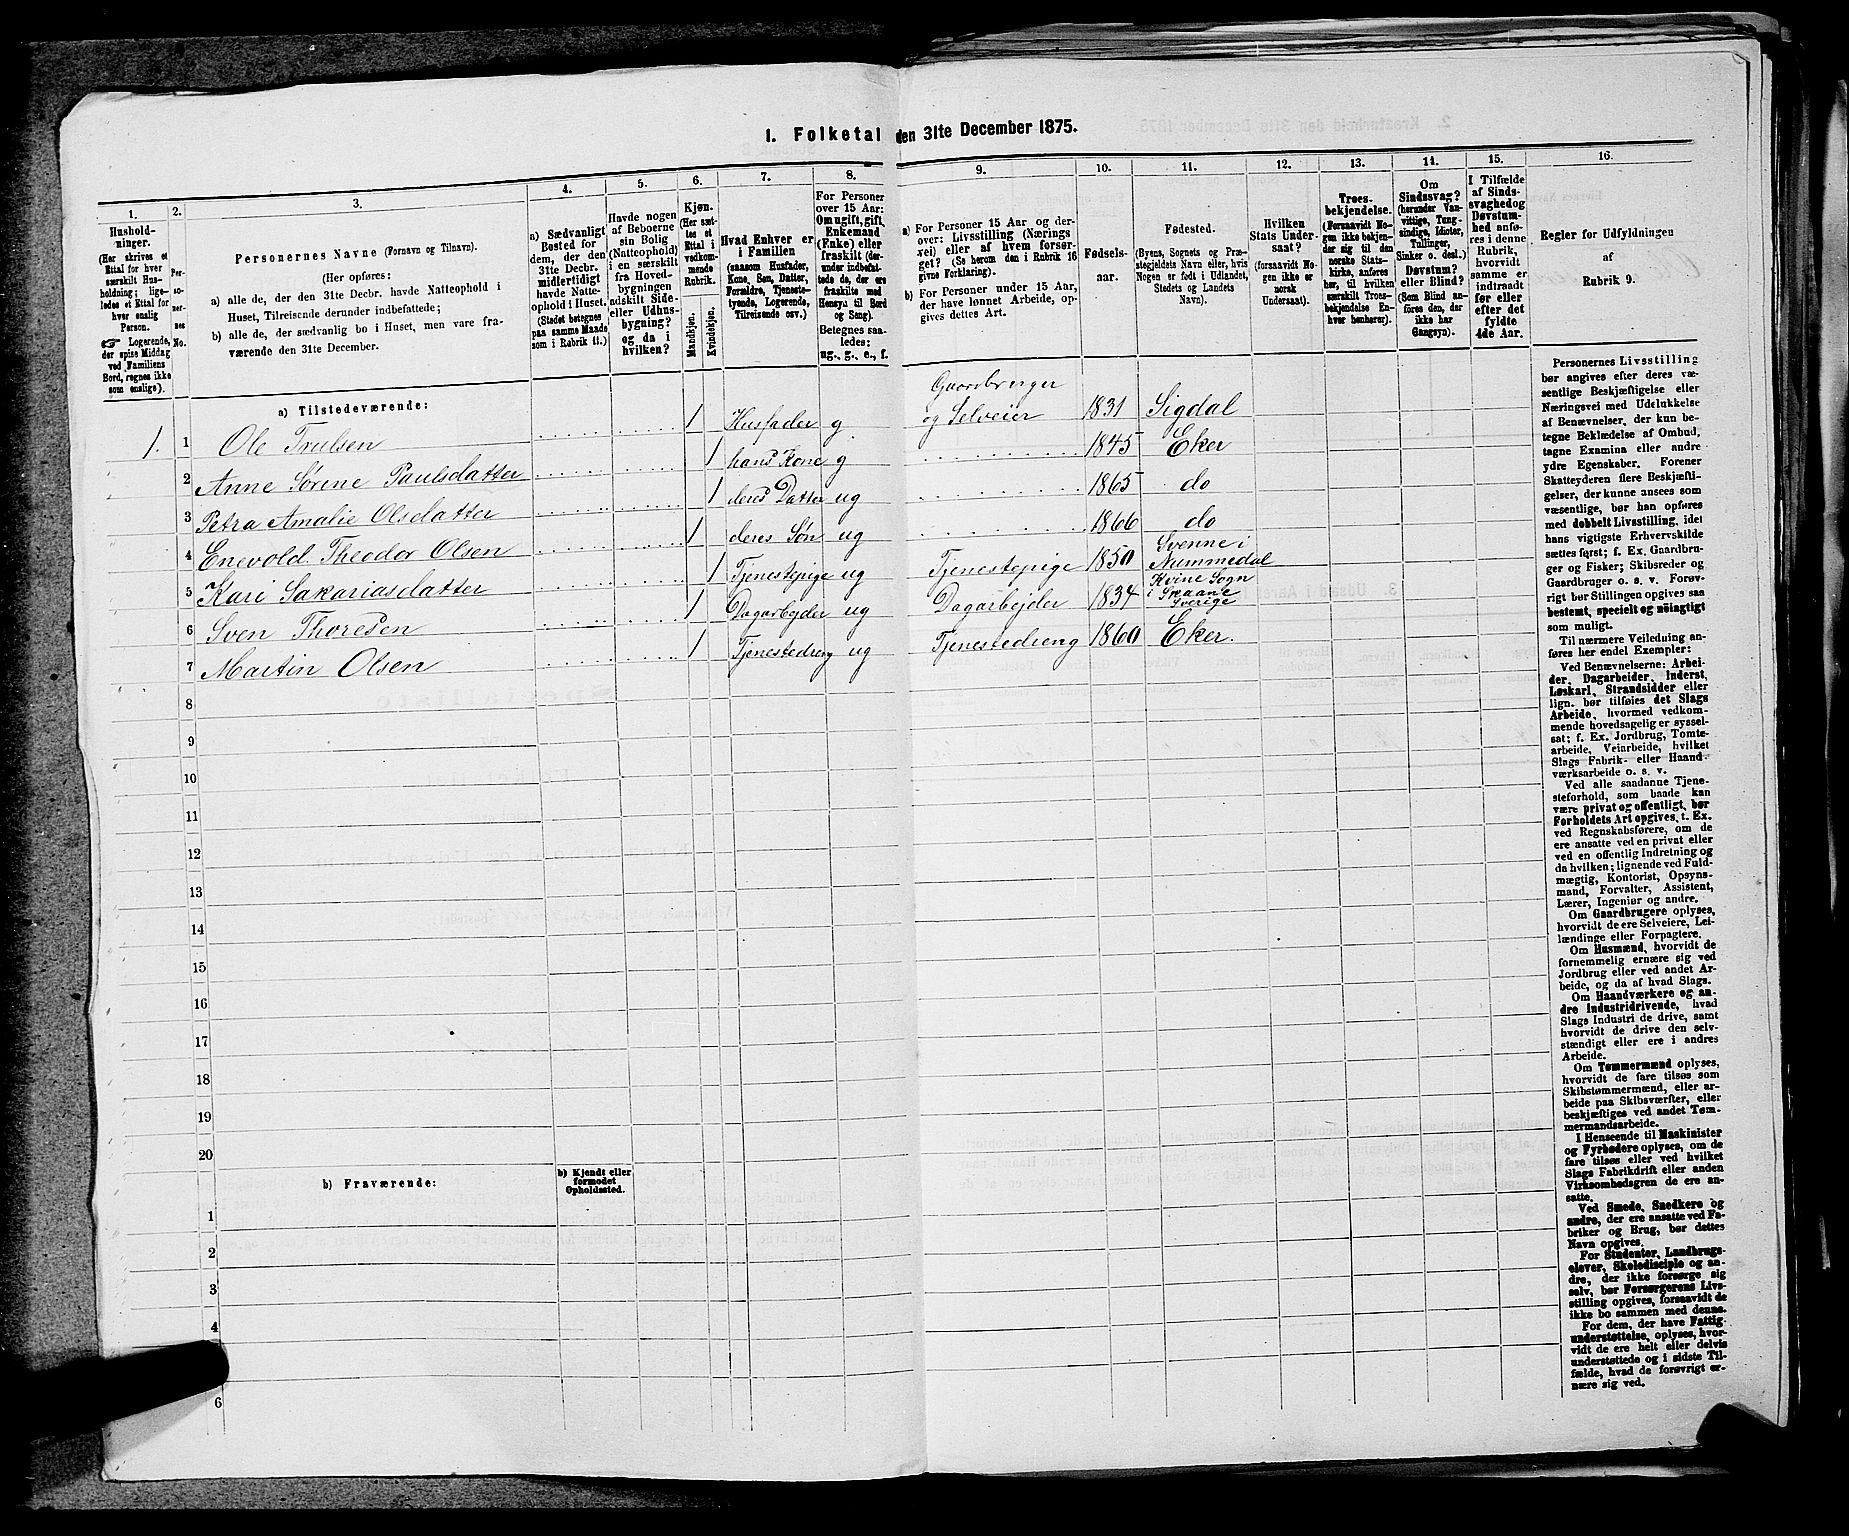 1. Folketal den 31te December 1875.
1.
2.
3.
4.
5.
6.
7.
8.
9.
10.
11.
12.
13.
14.
15.
16.
Hushold-
ninger.
(Her skrives et
Ettal for hver
særskilt Hus-
holdning; lige-
ledes et Ettal for
hver enslig
Person.
☞ Logerende,
der spise Middag
ved Familiens
Bord, regnes ikke
som enslige).
Per-
so-
ner-
nes
No.
Personernes Navne (Fornavn og Tilnavn).
(Her opføres:
a) alle de, der den 31te Decbr. havde Natteophold i
Huset, Tilreisende derunder indbefattede;
b) alle de, der sædvanlig bo i Huset, men vare fra-
værende den 31te December.
a) Sædvanligt
Bosted for
dem, der den
31te Decbr.
midlertidigt
havde Natte-
ophold i Huset.
(Stedet betegnes
paa samme Maade
som i Rubrik 11.)
Havde nogen
af Beboerne
sin Bolig
(Natteophold)
i en særskilt
fra Hoved-
bygningen
adskilt Side-
eller Udhus-
bygning?
og da i
hvilken?
Kjøn.
(Her sæt-
tes et
Ettal i
vedkom-
mende
Rubrik.
Mandkjøn.
Kvindekjøn.
Hvad Enhver er
i Familien
(saasom Husfader,
Kone, Søn, Datter,
Forældre, Tjeneste-
tyende, Logerende,
Tilreisende osv.)
For Personer
over 15 Aar:
Om ugift, gift,
Enkemand
(Enke) eller
fraskilt (der-
under indbefat-
tede de, der ere
fraskilte med
Hensyn til Bord
og Seng).
Betegnes saa-
ledes:
ug., g., e., f.
a) For Personer 15 Aar og der-
over: Livsstilling (Nærings
vei) eller af hvem forsør-
get? (Se herom den i Rubrik 16
givne Forklaring).
b) For Personer under 15 Aar,
der have lønnet Arbeide, op-
gives dettes Art.
Fødsels-
aar.
Fødested.
(Byens, Sognets og Præ-
stegjeldets Navn eller, hvis
Nogen er født i Udlandet,
Stedets og Landets
Navn).
Hvilken
Stats Under-
saat?
(forsaavidt No-
gen ikke er
norsk
Undersaat).
Troes-
bekjendelse.
(Forsaavidt No-
gen ikke bekjen-
der sig til den
norske Stats-
kirke, anføres
her, til hvilken
særskilt Troes-
bekjendelse En-
hver henhører).
Om
Sindssvag?
(herunder Van-
vittige, Tung-
sindige, Idioter,
Tullinger,
Sinker o. desl.)
Døvstum?
eller Blind?
(Som Blind an-
føres den, der
ikke har
Gangsyn).
I Tilfælde
af Sinds-
svaghed og
Døvstum-
hed anfø-
res i denne
Rubrik,
hvorvidt
samme er
indtraadt
før eller
efter det
fyldte
4de Aar.
Regler for Udfyldningen
af
Rubrik 9.
a) Tilstedeværende:
1. 1 Ole Trulsen 1 Husfader g Gaardbruger
og Selveier 1831 Sigdal
2 Anne Sørene Paulsdatter 1 hans Kone g 1845 Eker
3 Petra Amalie Olsdatter 1 deres Datter ug 1865 do
4 Enevold Theodor Olsen 1 deres Søn ug 1866 do
5 Kari Sakariasdatter 1 Tjenestepige ug Tjenestepige 1850 Svenne i
Nummedal
6 Sven Thoresen 1 Dagarbejder ug Dagarbejder 1834 Sogn
i
Sverige
7 Martin Olsen 1 Tjenestedreng ug Tjenestedreng 1860 Eker.
8
9
10
11
12
13
14
15
16
17
18
19
20
b) Fraværende:
b) Kjendt eller
formodet
Opholdssted.
1
2
3
4
6
Personernes Livsstilling
bør angives efter deres væ-
sentlige Beskjæftigelse eller
Næringsvei med Udelukkelse
af Benævnelser, der kun be-
tegne Beklædelse af Ombud,
tagne Examina eller andre
ydre Egenskaber. Forener
Skatteyderen flere Beskjæfti-
gelser, der kunne ansees som
væsentlige, bør han opføres
med dobbelt Livsstilling, idet
hans vigtigste Erhvervskilde
sættes først; f. Ex. Gaardbru-
ger og Fisker; Skibsreder og
Gaardbruger o. s. v. Forøv-
rigt bør Stillingen opgives saa
bestemt, specielt og nöiagtigt
som muligt.
Til nærmere Veiledning an-
føres her endel Exempler:
Ved Benævnelserne: Arbei-
der, Dagarbeider, Inderst,
Løskarl, Strandsidder eller
lign. bør tilføies det Slags
Arbeide, hvormed vedkom-
mende hovedsagelig er syssel-
sat; f. Ex. Jordbrug, Tomte-
arbeide, Veiarbeide, hvilket
Slags Fabrik- eller Haand-
værksarbeide o. s. v.
Ved alle saadanne Tjene-
steforhold, som baade kan
være privat og offentligt, bør
Forholdets Art opgives, t. Ex.
ved Regnskabsførere, om de
ere ansatte ved en privat eller
ved en offentlig Indretning og
da hvilken; lignende ved Fuld-
mægtig, Kontorist, Opsyns-
mand, Forvalter, Assistent,
Lærer, Ingeniør og andre.
Om Gaardbrugere oplyses,
hvorvidt de ere Selveiere, Lei-
lændinge eller Forpagtere.
Om Husmænd, hvorvidt de
fornemmelig ernære sig ved
Jordbrug eller ved andet Ar-
beide, og da af hvad Slags.
Om Haandværkere og an-
dre Industridrivende, hvad
Slags Industri de drive, samt
hvorvidt de drive den selv-
stændigt eller ere i andres
Arbeide.
Om Tømmermænd oplyses,
hvorvidt de fare tilsøs som
Skibstømmermænd, eller ar-
beide paa Skibsværfter, eller
beskjæftiges ved andet Tøm-
mermandsarbeide.
I Henseende til Maskinister
og Fyrbødere oplyses, om de
fare tilsøs eller ved hvilket
Slags Fabrikdrift eller anden
Virksomhedsgren de ere an-
satte.
Ved Smede, Snedkere og
andre, der ere ansatte ved Fa-
briker og Brug, bør dettes
Navn opgives.
For Studenter, Landbrugs-
elever, Skoledisciple og an-
dre, der ikke forsørge sig
selv, bør Forsørgerens Livs-
stilling opgives, forsaavidt de
ikke bo sammen med denne.
For dem, der have Fattig-
understøttelse, oplyses, hvor-
vidt de ere helt eller delvis
understøttede og i sidste Til-
fælde, hvad de forøvrigt er-
nære sig ved.